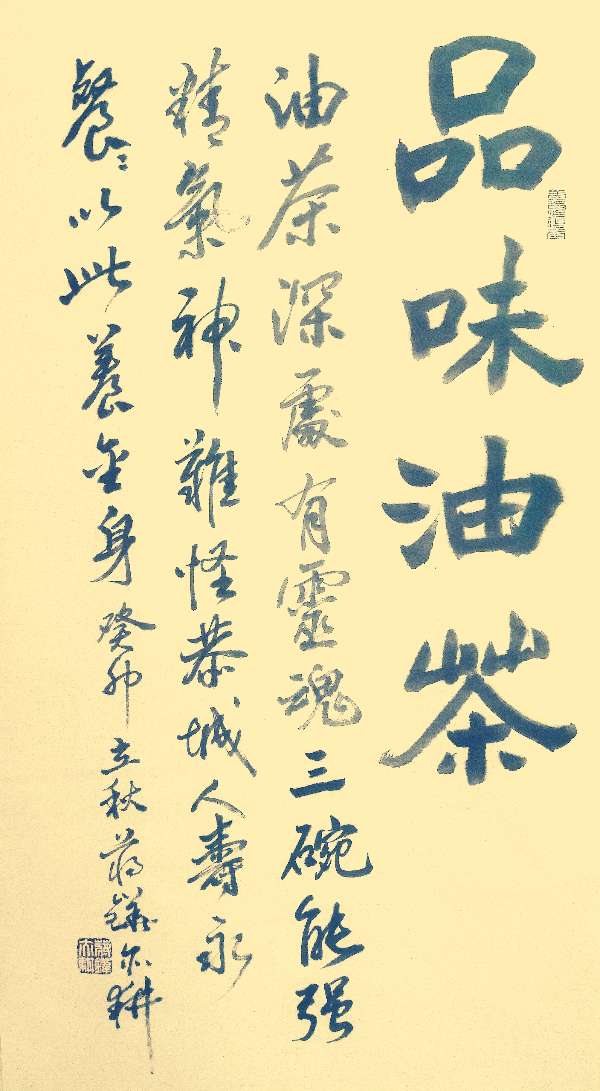 品味油茶
油茶深處有靈魂三碗能强
精氣神難怪恭城人壽永
餐〻以此養金身 癸卯立秋蒋